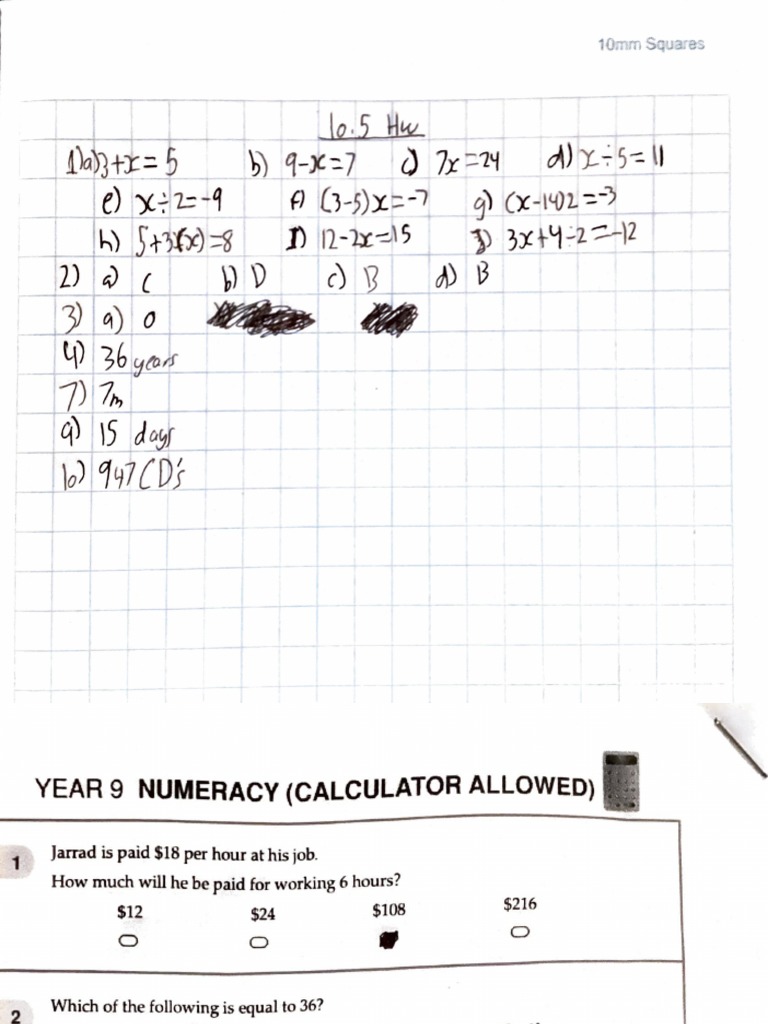 10mm Squares
10.5 Hw
1)a)3+x=5 b) 9-x=7 c) 7x=24 d) x÷5=11
e) x÷2=-9 f) (3-5)x=-7 g) (x-14)2=-3
h) 5+3(x)=8 I) 12-2x=15 j) 3x+4÷2=-12
2) a) C b) D c) B d) B
3) a) 0
4) 36 years
7) 7m
9) 15 days
10) 947 CD's
YEAR 9 NUMERACY (CALCULATOR ALLOWED)
1 Jarrad is paid $18 per hour at his job.
How much will he be paid for working 6 hours?
$12 $24 $108 $216
2 Which of the following is equal to 36?